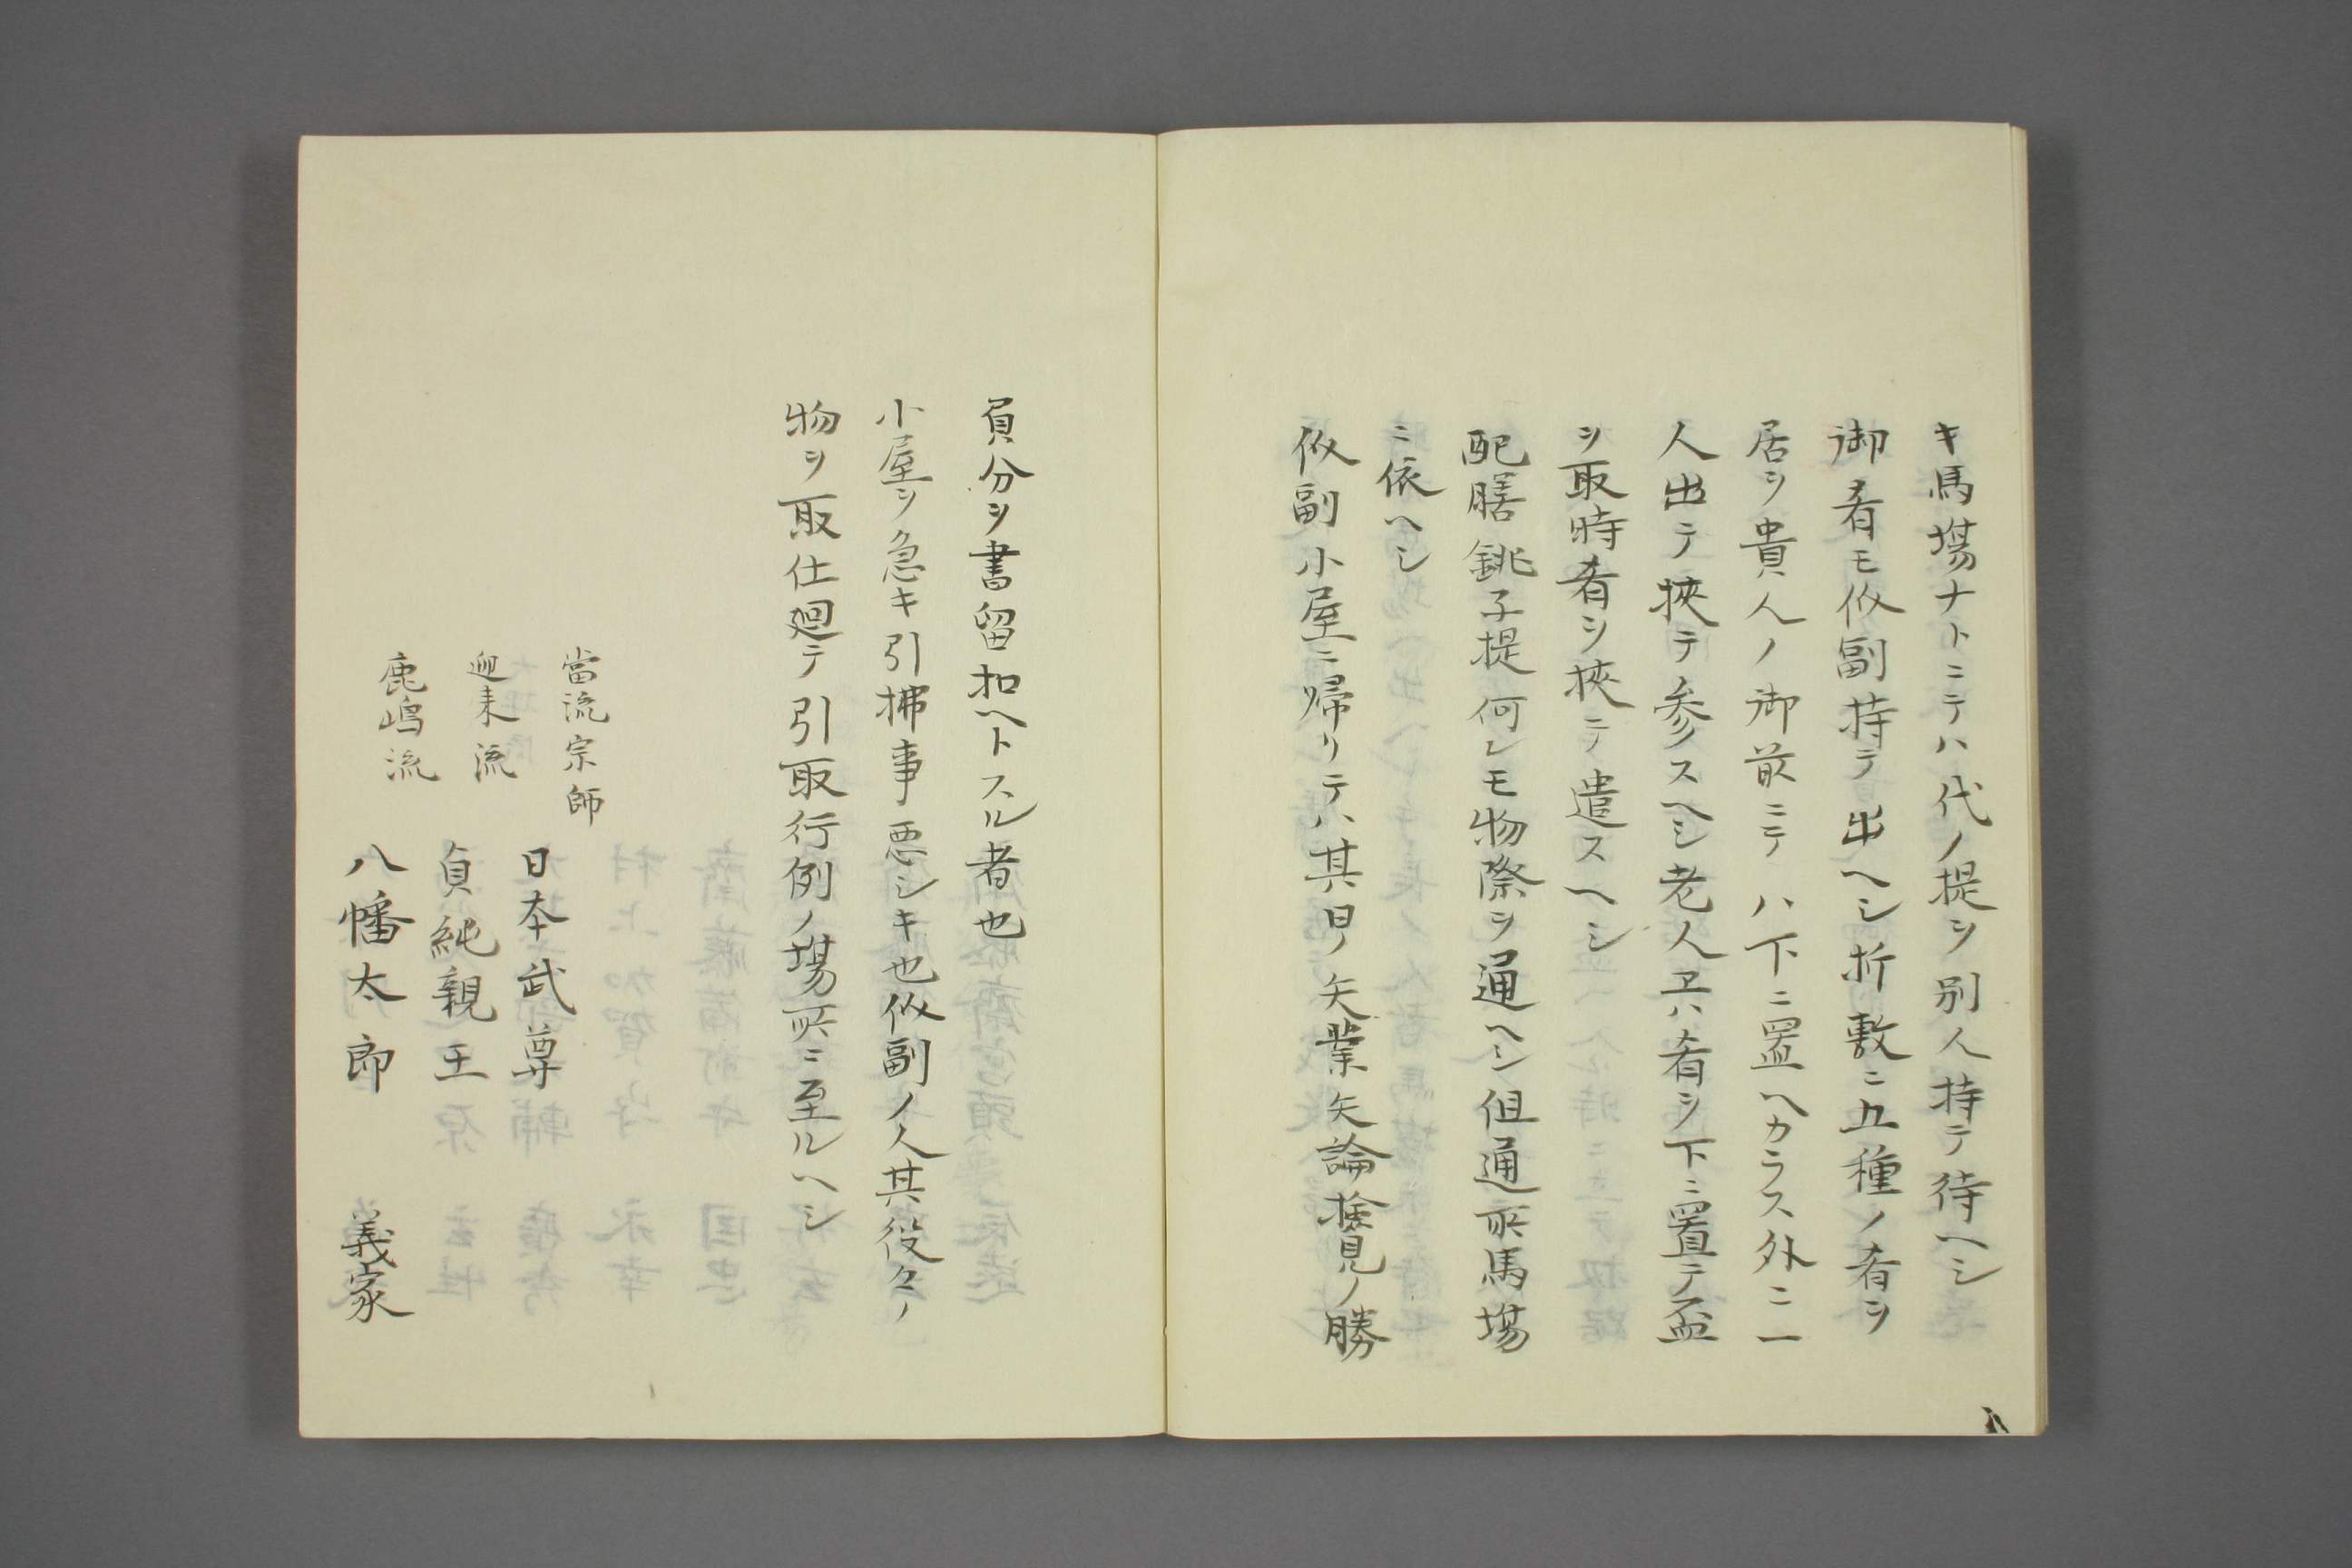 キ馬場ナトニテハ代ノ提ヲ別人持テ待ヘシ
御肴モ似副持テ出ヘシ折敷ニ五種ノ肴ヲ
居ヲ貴人ノ御前ニテハ下ニ置ヘカラス外ニ一
人出テ挾テ参スヘシ老人ヱハ肴ヲ下ニ置テ盃
ヲ取時肴ヲ挾テ遣スヘシ
配膳銚子提何レモ物際ヲ通ヘシ但通所馬場
ニ依ヘシ
似副小屋ニ帰リテハ其日ノ矢業矢論撿見ノ勝
負分ヲ書留扣ヘトスル者也
小屋ヲ急キ引拂事悪シキ也似副ノ人其役々ノ
物ヲ取仕廻テ引取行例ノ場所ニ至ルヘシ
當流宗師 日本武尊
迎来流 貞純親王
鹿嶋流 八幡太郎 義家